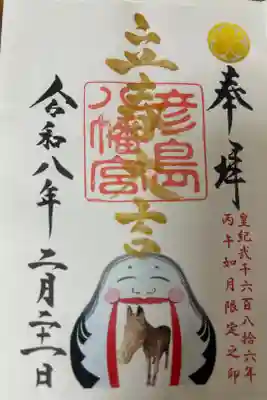 奉拝
皇紀弐千六百八拾六年
丙午如月限定之印
立春大吉
彦島
八幡宮
令和八年二月二十一日